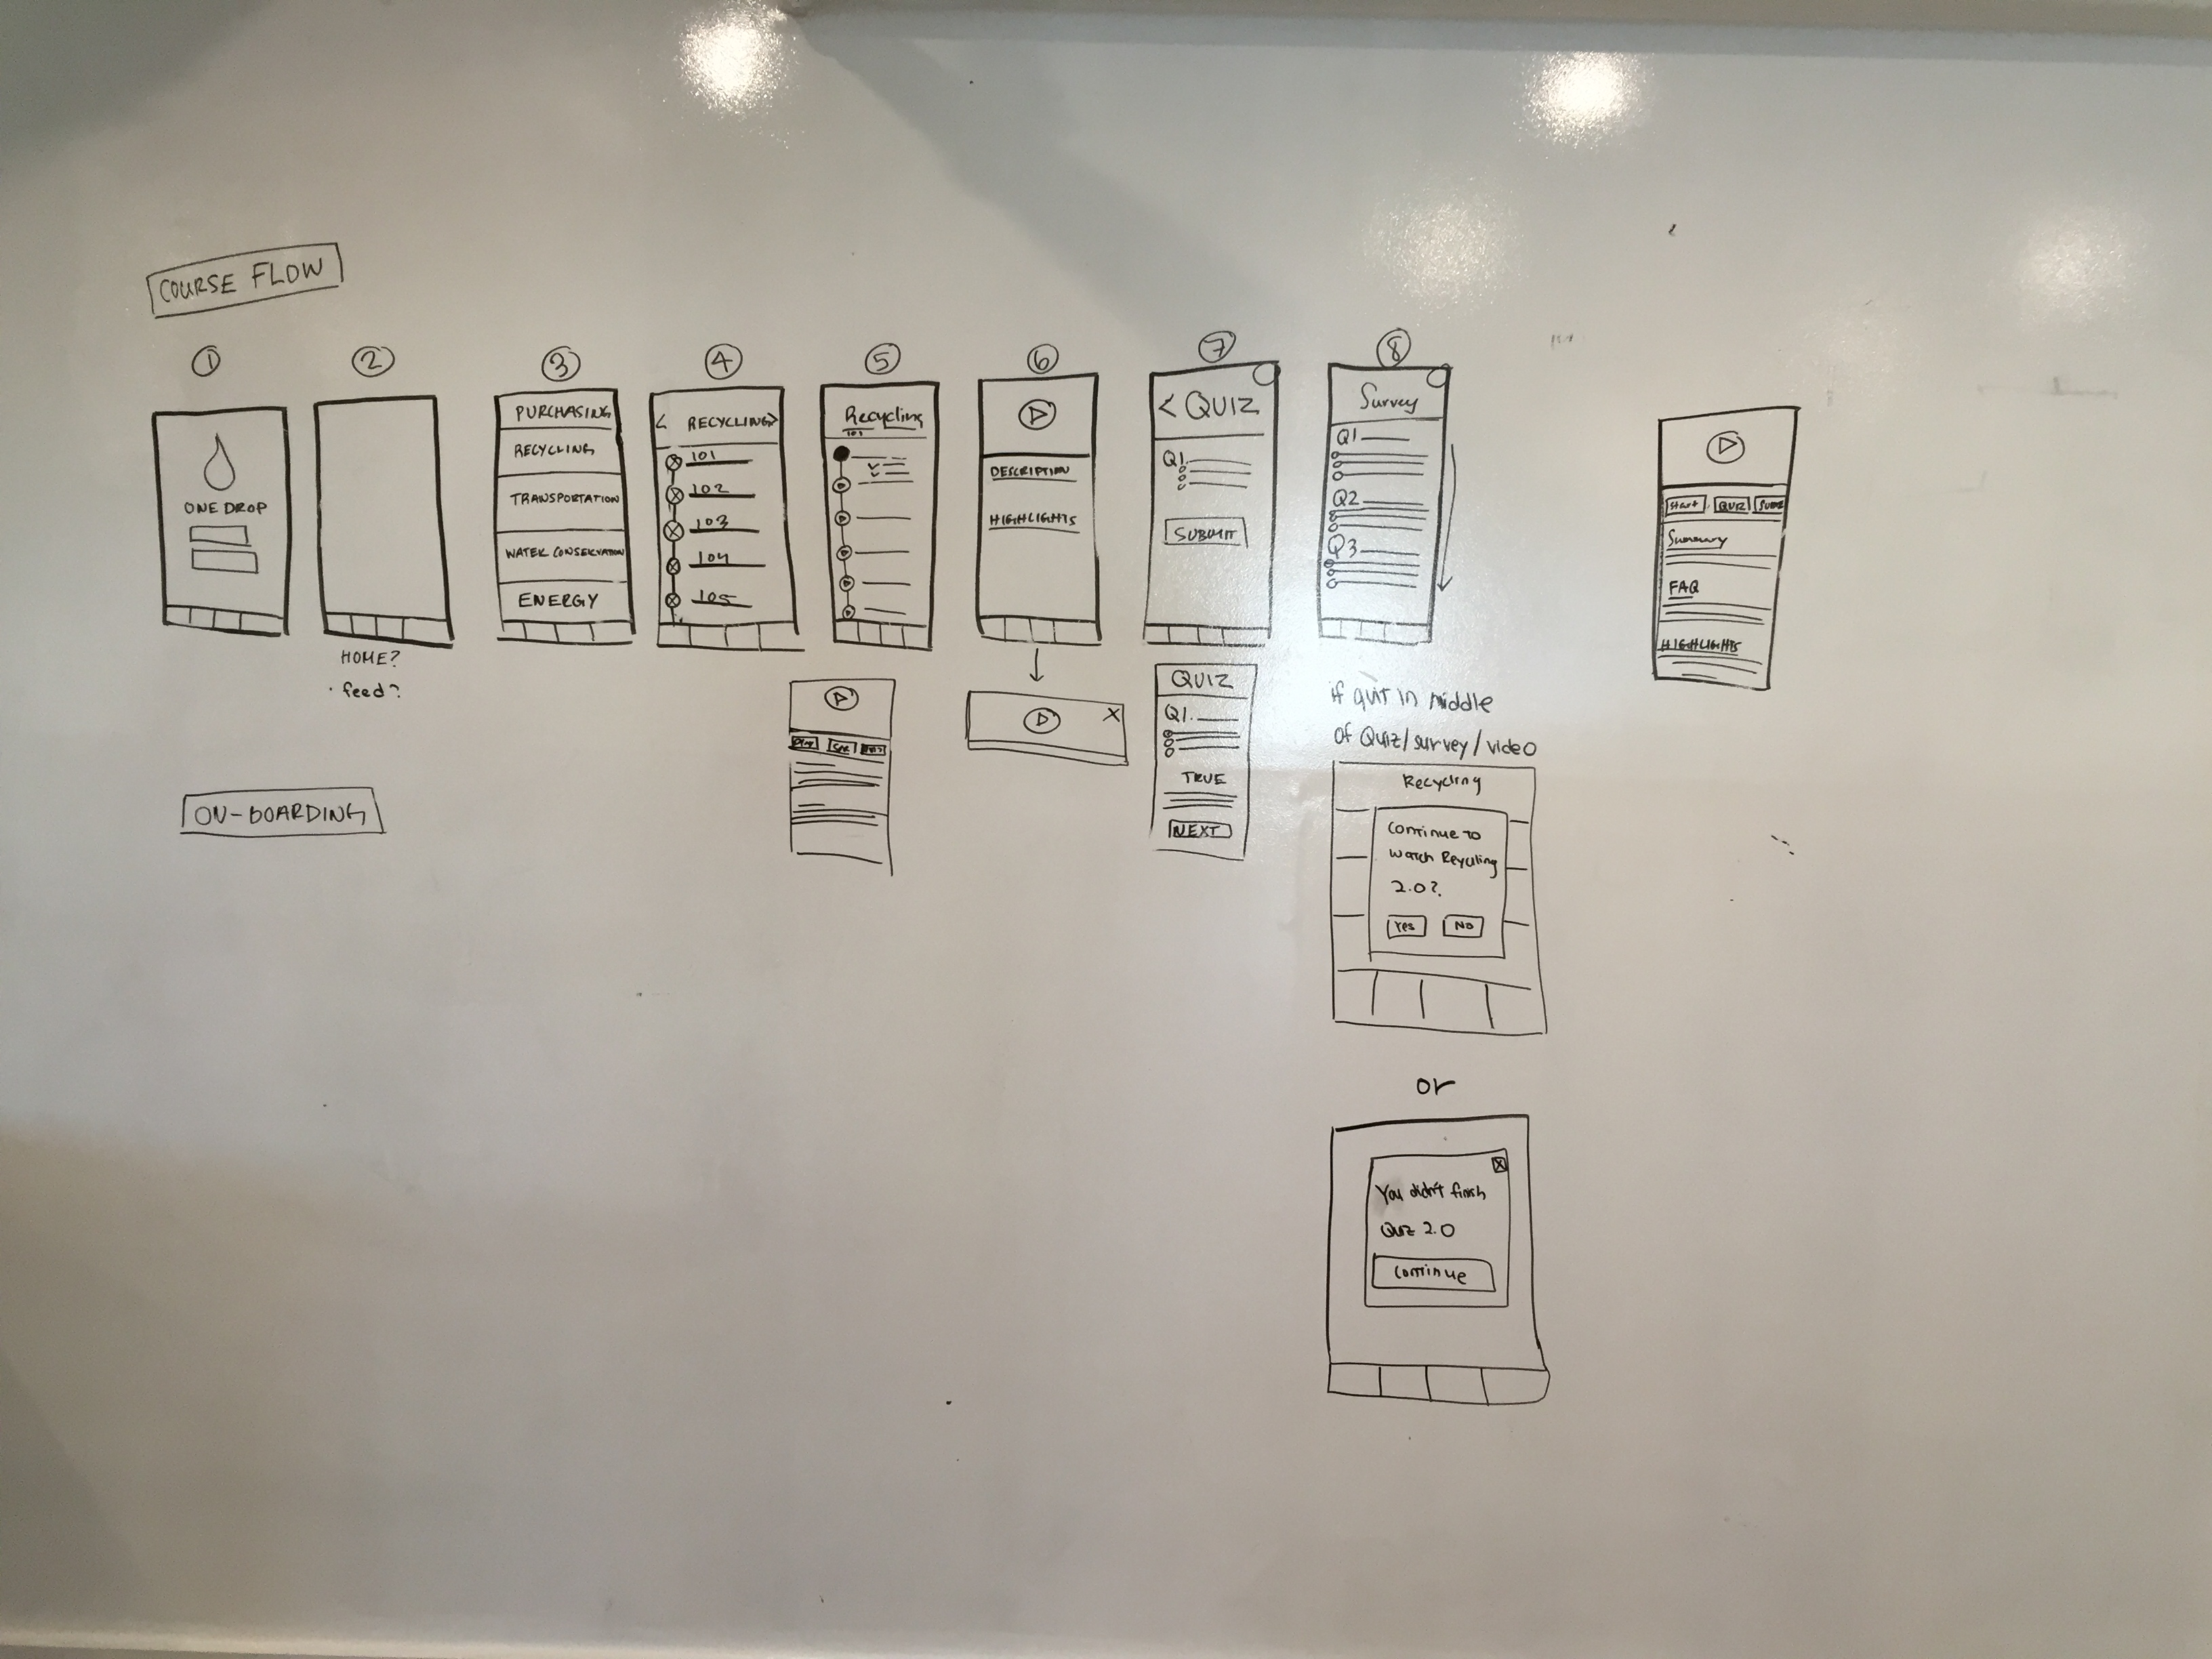 COURSE FLOW
1
2
3
4
5
6
7
8
ONE DROP
HOME?
feed?
PURCHASING
RECYCLING
TRANSPORTATION
WATER CONSERVATION
ENERGY
< RECYCLING>
101
102
103
104
105
Recycling
101
DESCRIPTION
HIGHLIGHTS
X
< QUIZ
Q1.
SUBMIT
QUIZ
Q1.
TRUE
NEXT
Survey
Q1
Q2
Q3
if quit in middle
of Quiz/survey/video
Recycling
Continue to
watch Recycling
2.0?
Yes NO
or
X
You didn't finish
Quiz 2.0
Continue
Start QUIZ
Summary
FAQ
HIGHLIGHTS
ON-BOARDING